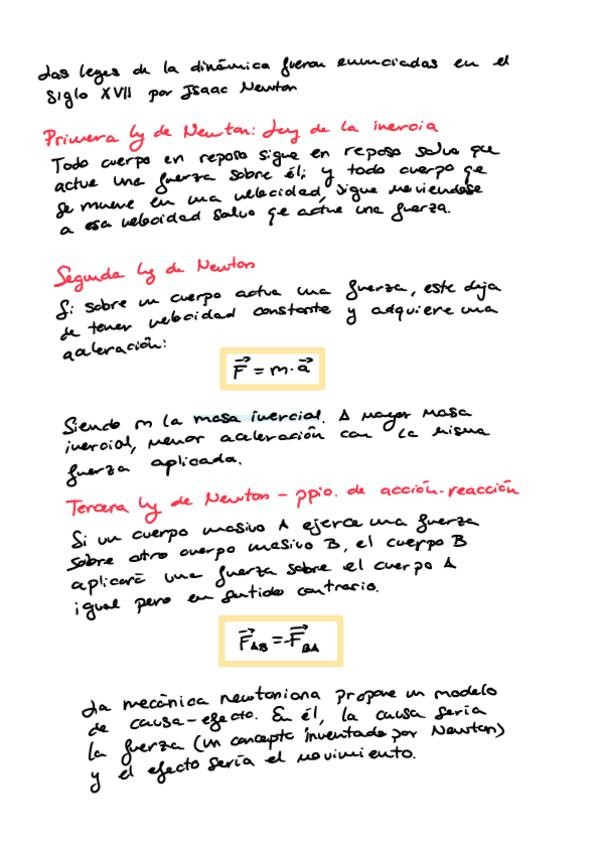 Las leyes de la dinámica fueron enunciadas en el
Siglo XVII por Isaac Newton
Primera ley de Newton: Ley de la inercia
Todo cuerpo en reposo sigue en reposo salvo que
actue una fuerza sobre él; y todo cuerpo qe
se mueve en una velocidad, sigue moviendose
a esa velocidad salvo qe actue una fuerza.
Segunda ley de Newton
Si sobre un cuerpo actua una fuerza, este deja
de tener velocidad constante y adquiere una
aceleración:
F⃗ = m · a⃗
Siendo m la masa inercial. A mayor masa
inercial, menor aceleración con la misma
fuerza aplicada.
Tercera ley de Newton - ppio. de acción-reacción
Si un cuerpo masivo A ejerce una fuerza
sobre otro cuerpo masivo B, el cuerpo B
aplicará una fuerza sobre el cuerpo A
igual pero en sentido contrario.
F⃗AB = -F⃗BA
La mecánica newtoniana propone un modelo
de causa-efecto. En él, la causa sería
la fuerza (un concepto inventado por Newton)
y el efecto sería el movimiento.